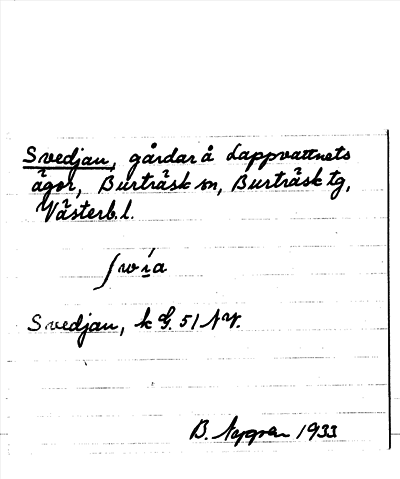 Svedjan, gårdar å Lappvattnets
ägor, Burträsk sn, Burträsk tg,
Västerb.l.
Svedjan, k G. 51 NV.
B. Nygren 1933